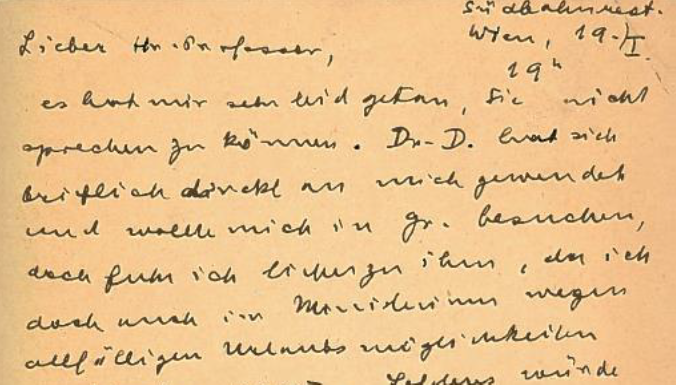 Südbahnrest.
Wien, 19./I.
19ʰ
Lieber Hr. Professor,
es hat mir sehr leid getan, Sie nicht
sprechen zu können. Dr. D. hat sich
brieflich direkt an mich gewendet
und wollte mich in Gr. besuchen,
doch fuhr ich lieber zu ihm, da ich
doch auch im Ministerium wegen
allfälligen Urlaubsmöglichkeiten
Letzteres würde